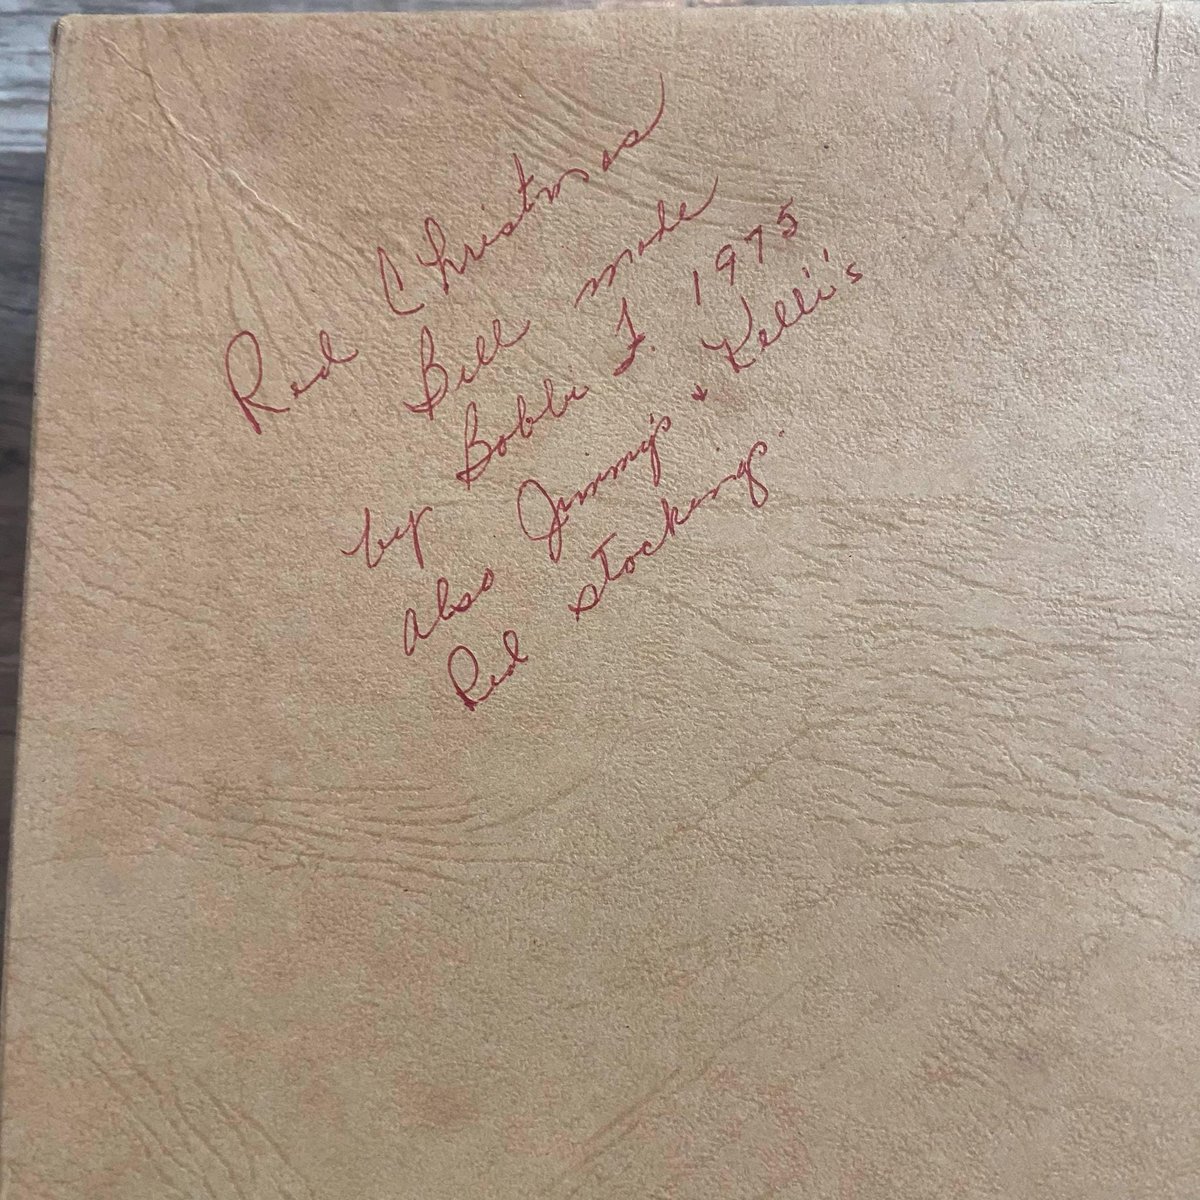 Red Christmas
Bell made
by Bobbi F. 1975
also Jimmy's & Kelli's
Red stockings.